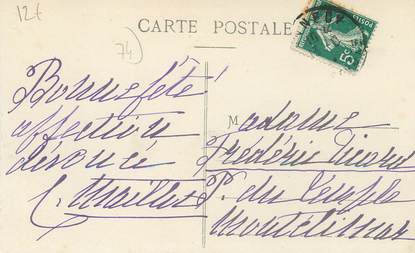 12€
74
CARTE POSTALE
Bonne fête
affection
dévouée
C. Maillet
Madame
Frédéric Picard
P. du Temple
Montélimar
5c